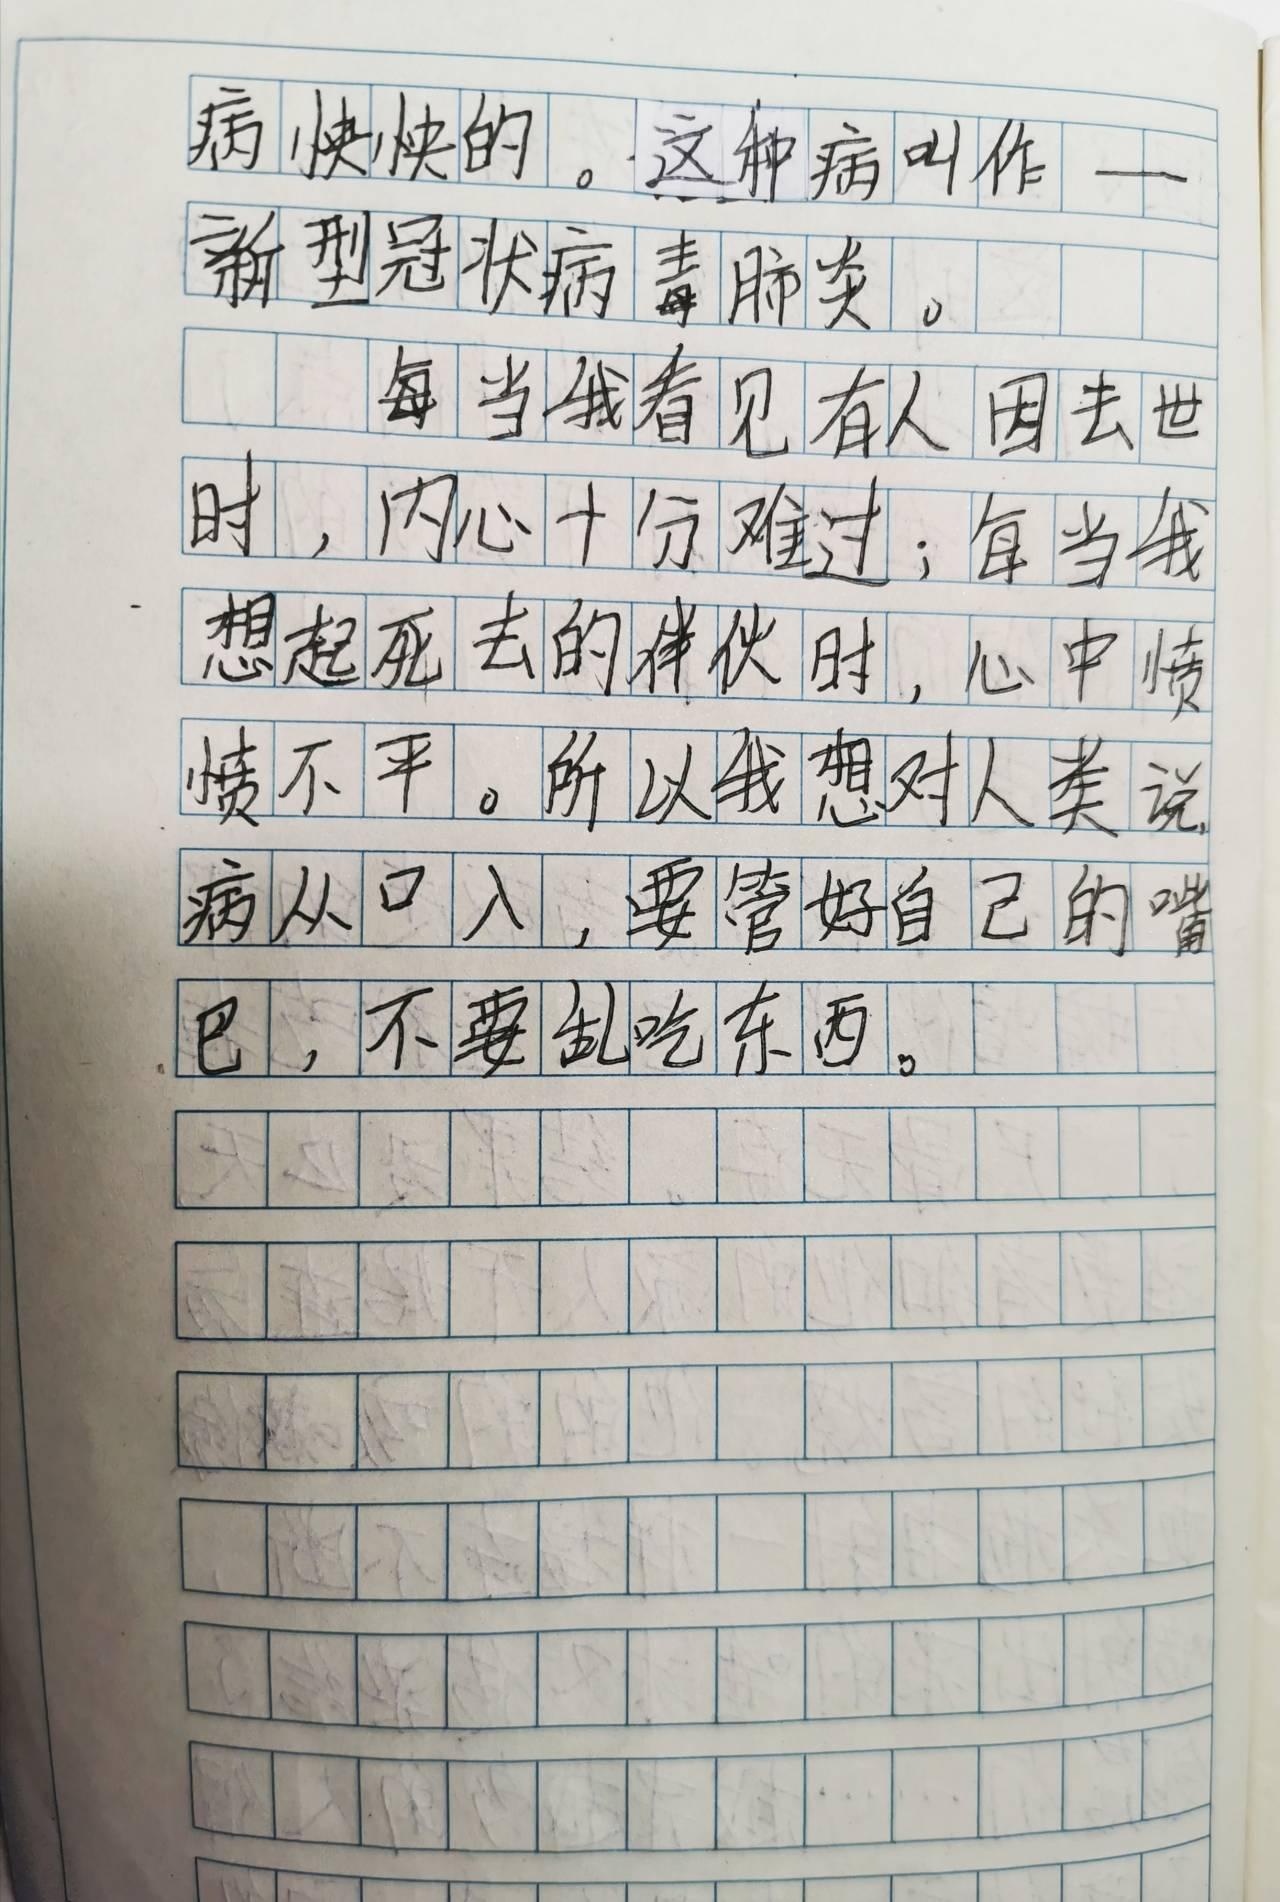 病怏怏的。这种病叫作——
新型冠状病毒肺炎。
每当我看见有人因去世
时，内心十分难过；每当我
想起死去的伴伙时，心中愤
愤不平。所以我想对人类说、
病从口入，要管好自己的嘴
巴，不要乱吃东西。